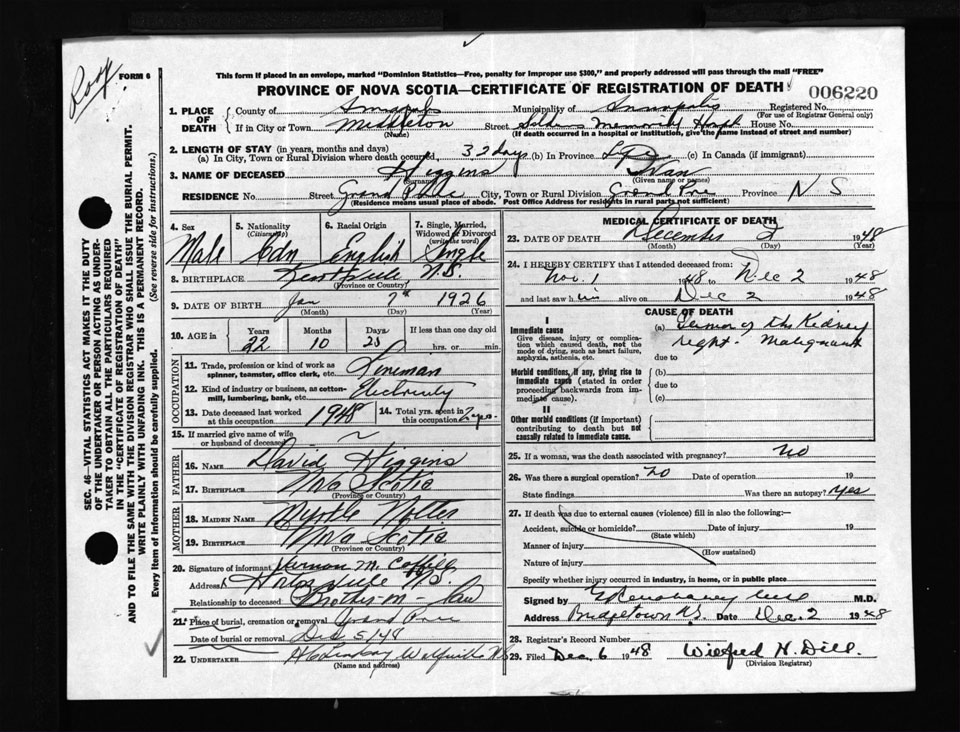 FORM 6
This form if placed in an envelope, marked "Dominion Statistics—Free, penalty for improper use $300," and properly addressed will pass through the mail "FREE"
PROVINCE OF NOVA SCOTIA—CERTIFICATE OF REGISTRATION OF DEATH
006220
1. PLACE OF DEATH
County of Annapolis Municipality of Annapolis Registered No.
(For use of Registrar General only)
If in City or Town Middleton Street Soldiers Memorial Hospt House No.
(Name) (If death occurred in a hospital or institution, give the name instead of street and number)
2. LENGTH OF STAY (in years, months and days)
(a) In City, Town or Rural Division where death occurred, 32 days (b) In Province Life (c) In Canada (if immigrant)
3. NAME OF DECEASED Higgins Ivan
(Surname) (Given name or names)
RESIDENCE No. Street Grand Pre City, Town or Rural Division Grand Pre Province N S
(Residence means usual place of abode. Post Office Address for residents in rural parts not sufficient)
4. Sex Male
5. Nationality (Citizenship) Cdn
6. Racial Origin English
7. Single, Married, Widowed or Divorced (write the word) Single
8. BIRTHPLACE N.S.
(Province or Country)
9. DATE OF BIRTH Jan 7th 1926
(Month) (Day) (Year)
10. AGE in Years 22 Months 10 Days 25 If less than one day old
hrs. or min.
OCCUPATION
11. Trade, profession or kind of work as spinner, teamster, office clerk, etc. Lineman
12. Kind of industry or business, as cotton-mill, lumbering, bank, etc. Electricity
13. Date deceased last worked at this occupation 1948
14. Total yrs. spent in this occupation 2 yrs.
15. If married give name of wife or husband of deceased
FATHER
16. NAME David Higgins
17. BIRTHPLACE Nova Scotia
(Province or Country)
MOTHER
18. MAIDEN NAME Myrtle
19. BIRTHPLACE Nova Scotia
(Province or Country)
20. Signature of informant Vernon M. Coffill
Address N.S.
Relationship to deceased Brother-in-law
21. Place of burial, cremation or removal Grand Pre
Date of burial or removal Dec 5/48
22. UNDERTAKER Wolfville NS
(Name and address)
MEDICAL CERTIFICATE OF DEATH
23. DATE OF DEATH December 2 1948
(Month) (Day) (Year)
24. I HEREBY CERTIFY that I attended deceased from:
Nov. 1 1948 to Dec 2 1948
and last saw him alive on Dec 2 1948
CAUSE OF DEATH
I
Immediate cause
Give disease, injury or complication which caused death, not the mode of dying, such as heart failure, asphyxia, asthenia, etc.
(a) of the Kidney
right. Malignant
due to
Morbid conditions, if any, giving rise to immediate cause (stated in order proceeding backwards from immediate cause)
(b)
due to
(c)
II
Other morbid conditions (if important) contributing to death but not causally related to immediate cause.
25. If a woman, was the death associated with pregnancy? No
26. Was there a surgical operation? No Date of operation 19
State findings Was there an autopsy? yes
27. If death was due to external causes (violence) fill in also the following:—
Accident, suicide or homicide? Date of injury 19
(State which)
Manner of injury
(How sustained)
Nature of injury
Specify whether injury occurred in industry, in home, or in public place
Signed by M.D.
Address Bridgetown N.S. Date Dec. 2 1948
28. Registrar's Record Number
29. Filed Dec 6 1948 Wilfred N. Dill.
(Division Registrar)
SEC. 46—VITAL STATISTICS ACT MAKES IT THE DUTY
OF THE UNDERTAKER OR PERSON ACTING AS UNDER-
TAKER TO OBTAIN ALL THE PARTICULARS REQUIRED
IN THE "CERTIFICATE OF REGISTRATION OF DEATH"
AND TO FILE THE SAME WITH THE DIVISION REGISTRAR WHO SHALL ISSUE THE BURIAL PERMIT.
WRITE PLAINLY WITH UNFADING INK. THIS IS A PERMANENT RECORD.
Every item of information should be carefully supplied. (See reverse side for instructions.)